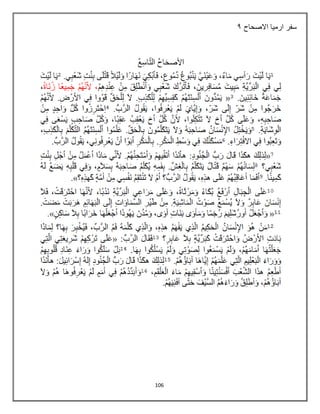 سفر ارميا الاصحاح ٩
اَلأَصْحَاحُ التَّاسِعُ
1يَا لَيْتَ رَأْسِي مَاءٌ، وَعَيْنَيَّ يَنْبُوعُ دُمُوعٍ، فَأَبْكِيَ نَهَارًا وَلَيْلاً قَتْلَى بِنْتِ شَعْبِي. 2يَا لَيْتَ
لِي فِي الْبَرِّيَّةِ مَبِيتَ مُسَافِرِينَ، فَأَتْرُكَ شَعْبِي وَأَنْطَلِقَ مِنْ عِنْدِهِمْ، لأَنَّهُمْ جَمِيعًا زُنَاةٌ،
جَمَاعَةُ خَائِنِينَ. 3«يَمُدُّونَ أَلْسِنَتَهُمْ كَقِسِيِّهِمْ لِلْكَذِبِ. لاَ لِلْحَقِّ قَوُوا فِي الأَرْضِ. لأَنَّهُمْ
خَرَجُوا مِنْ شَرّ إِلَى شَرّ، وَإِيَّايَ لَمْ يَعْرِفُوا، يَقُولُ الرَّبُّ. 4اِحْتَرِزُوا كُلُّ وَاحِدٍ مِنْ
صَاحِبِهِ، وَعَلَى كُلِّ أَخٍ لاَ تَتَّكِلُوا، لأَنَّ كُلَّ أَخٍ يَعْقِبُ عَقِبًا، وَكُلَّ صَاحِبٍ يَسْعَى فِي
الْوِشَايَةِ. 5وَيَخْتِلُ الإِنْسَانُ صَاحِبَهُ وَلاَ يَتَكَلَّمُونَ بِالْحَقِّ. عَلَّمُوا أَلْسِنَتَهُمُ التَّكَلُّمَ بِالْكَذِبِ،
وَتَعِبُوا فِي الافْتِرَاءِ. 6مَسْكَنُكَ فِي وَسْطِ الْمَكْرِ. بِالْمَكْرِ أَبَوْا أَنْ يَعْرِفُونِي، يَقُولُ الرَّبُّ.
7«لِذلِكَ هكَذَا قَالَ رَبُّ الْجُنُودِ: هأَنَذَا أُنَقِّيهِمْ وَأَمْتَحِنُهُمْ. لأَنِّي مَاذَا أَعْمَلُ مِنْ أَجْلِ بِنْتِ
شَعْبِي؟ 8لِسَانُهُمْ سَهْمٌ قَتَّالٌ يَتَكَلَّمُ بِالْغِشِّ. بِفَمِهِ يُكَلِّمُ صَاحِبَهُ بِسَلاَمٍ، وَفِي قَلْبِهِ يَضَعُ لَهُ
كَمِينًا. 9أَفَمَا أُعَاقِبُهُمْ عَلَى هذِهِ، يَقُولُ الرَّبُّ؟ أَمْ لاَ تَنْتَقِمُ نَفْسِي مِنْ أُمَّةٍ كَهذِهِ؟».
10عَلَى الْجِبَالِ أَرْفَعُ بُكَاءً وَمَرْثَاةً، وَعَلَى مَرَاعِي الْبَرِّيَّةِ نَدْبًا، لأَنَّهَا احْتَرَقَتْ، فَلاَ
إِنْسَانَ عَابِرٌ وَلاَ يُسْمَعُ صَوْتُ الْمَاشِيَةِ. مِنْ طَيْرِ السَّمَاوَاتِ إِلَى الْبَهَائِمِ هَرَبَتْ مَضَتْ.
11«وَأَجْعَلُ أُورُشَلِيمَ رُجَمًا وَمَأْوَى بَنَاتِ آوَى، وَمُدُنَ يَهُوذَا أَجْعَلُهَا خَرَابًا بِلاَ سَاكِنٍ».
12مَنْ هُوَ الإِنْسَانُ الْحَكِيمُ الَّذِي يَفْهَمُ هذِهِ، وَالَّذِي كَلَّمَهُ فَمُ الرَّبِّ، فَيُخْبِرَ بِهَا؟ لِمَاذَا
بَادَتِ الأَرْضُ وَاحْتَرَقَتْ كَبَرِّيَّةٍ بِلاَ عَابِرٍ؟ 13فَقَالَ الرَّبُّ: «عَلَى تَرْكِهِمْ شَرِيعَتِي الَّتِي
جَعَلْتُهَا أَمَامَهُمْ، وَلَمْ يَسْمَعُوا لِصَوْتِي وَلَمْ يَسْلُكُوا بِهَا. 14بَلْ سَلَكُوا وَرَاءَ عِنَادِ قُلُوبِهِمْ
وَوَرَاءَ الْبَعْلِيمِ الَّتِي عَلَّمَهُمْ إِيَّاهَا آبَاؤُهُمْ. 15لِذلِكَ هكَذَا قَالَ رَبُّ الْجُنُودِ إِلهُ إِسْرَائِيلَ: هأَنَذَا
أُطْعِمُ هذَا الشَّعْبَ أَفْسَنْتِينًا وَأَسْقِيهِمْ مَاءَ الْعَلْقَمِ، 16وَأُبَدِّدُهُمْ فِي أُمَمٍ لَمْ يَعْرِفُوهَا هُمْ وَلاَ
آبَاؤُهُمْ، وَأُطْلِقُ وَرَاءَهُمُ السَّيْفَ حَتَّى أُفْنِيَهُمْ.
106